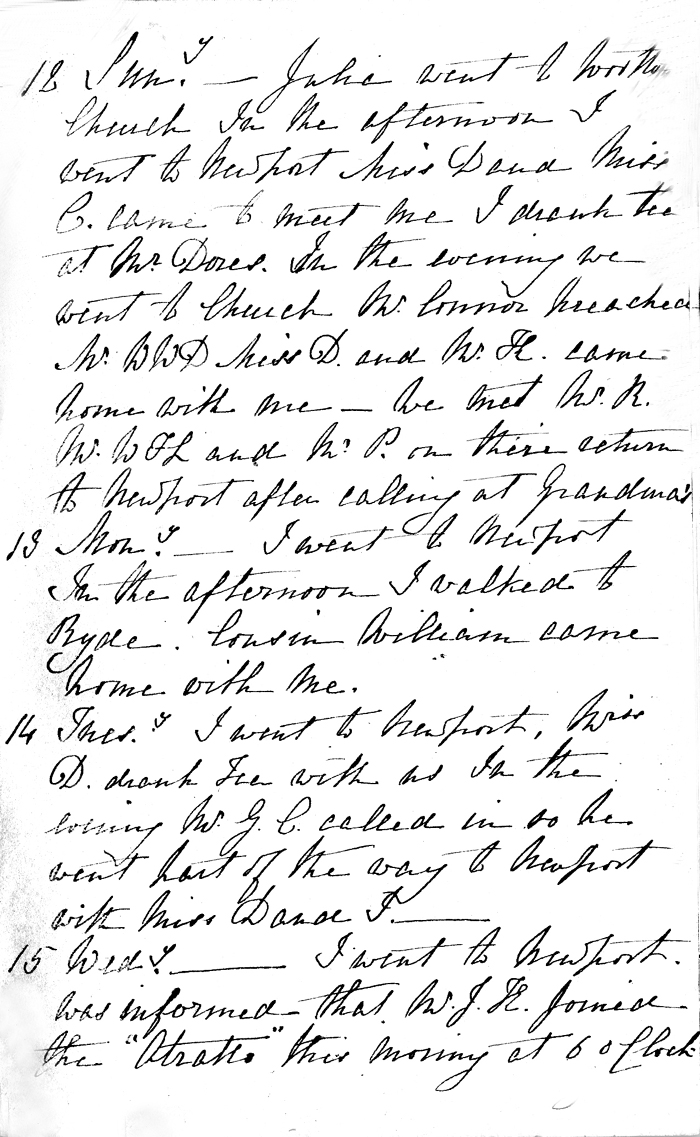 12 Sun.y — Julia went to Wootton
Church In the afternoon I
went to Newport Miss D and Miss
C. came to meet me I drank tea
at Mr Dores. In the evening we
went to Church Mr. Connor preached
Mr. BWD Miss D. and Mr. H. came
home with me — We met Mr. R.
Mr. W H L and Mr P. on there return
to Newport after calling at Grandma's
13 Mon.y — I went to Newport
In the afternoon I walked to
Ryde. Cousin William came
home with me.
14 Tues.y I went to Newport, Miss
D. drank Tea with us In the
evening Mr. G. C. called in so he
went part of the way to Newport
with Miss D and I. —
15 Wed.y — I went to Newport.
was informed that Mr. J. H. Joined
the "Atrato" this morning at 6 o Clock